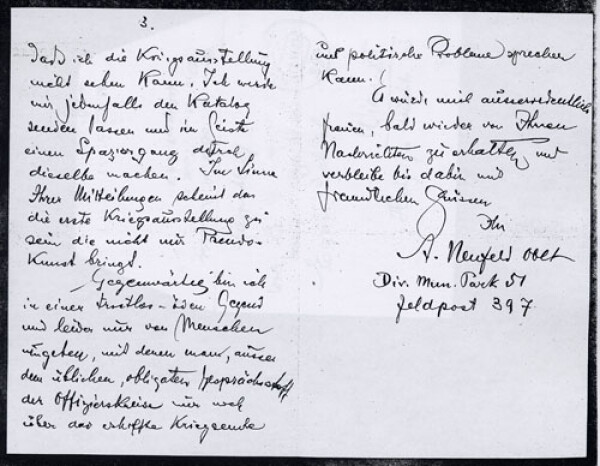 3.
dass ich die Kriegsausstellung
nicht sehen kann. Ich werde
mir jedenfalls den Katalog
senden lassen und im Geiste
einen Spaziergang durch
dieselbe machen. Im Sinne
Ihrer Mitteilungen scheint das
die erste Kriegsausstellung zu
sein die nicht nur Pseudo-
Kunst bringt.
Gegenwärtig bin ich
in einer trostlos-öden Gegend
und leider nur von Menschen
umgeben, mit denen man, ausser
dem üblichen, obligaten Gesprächsstoff
der Offizierskreise nur noch
über das erhoffte Kriegsende
und politische Probleme sprechen
kann.
Es würde mich ausserordentlich
freuen, bald wieder von Ihnen
Nachrichten zu erhalten, und
verbleibe bis dahin mit
freundlichen Grüssen
Ihr
A. Neufeld Oblt
Div. Mun. Park 51
Feldpost 397